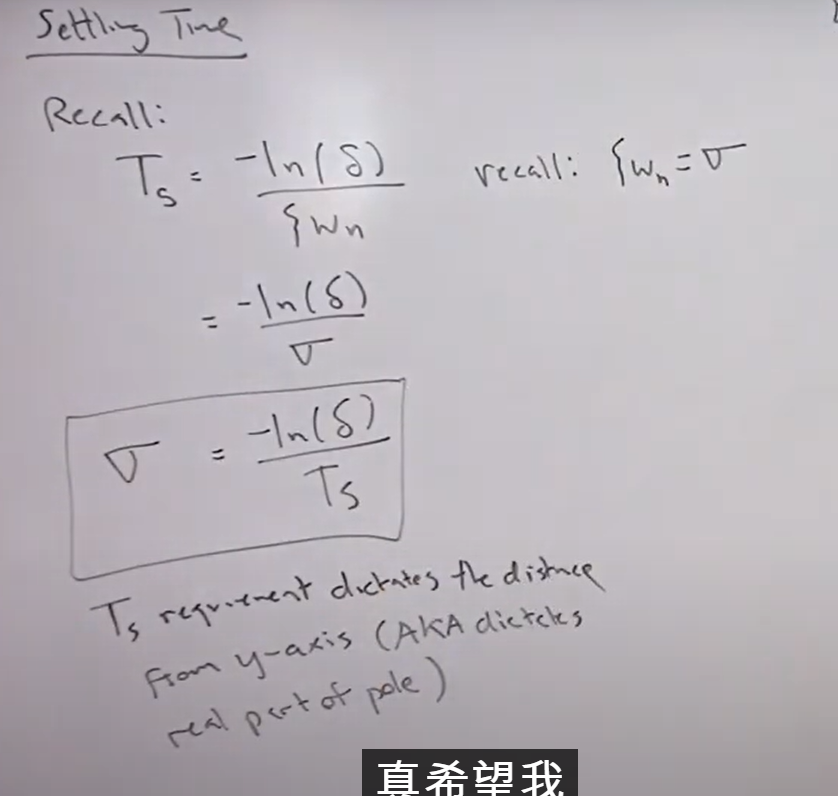 Settling Time
Recall:
T_s = -ln(δ) / ζω_n    recall: ζω_n = σ
= -ln(δ) / σ
σ = -ln(δ) / T_s
T_s requirement dictates the distance
from y-axis (AKA dictates
real part of pole)
真希望我